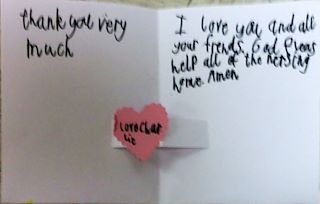 thank you very
much
I love you and all
your frends. God Pleas
help all of the nersing
home. Amen
love Char
lie